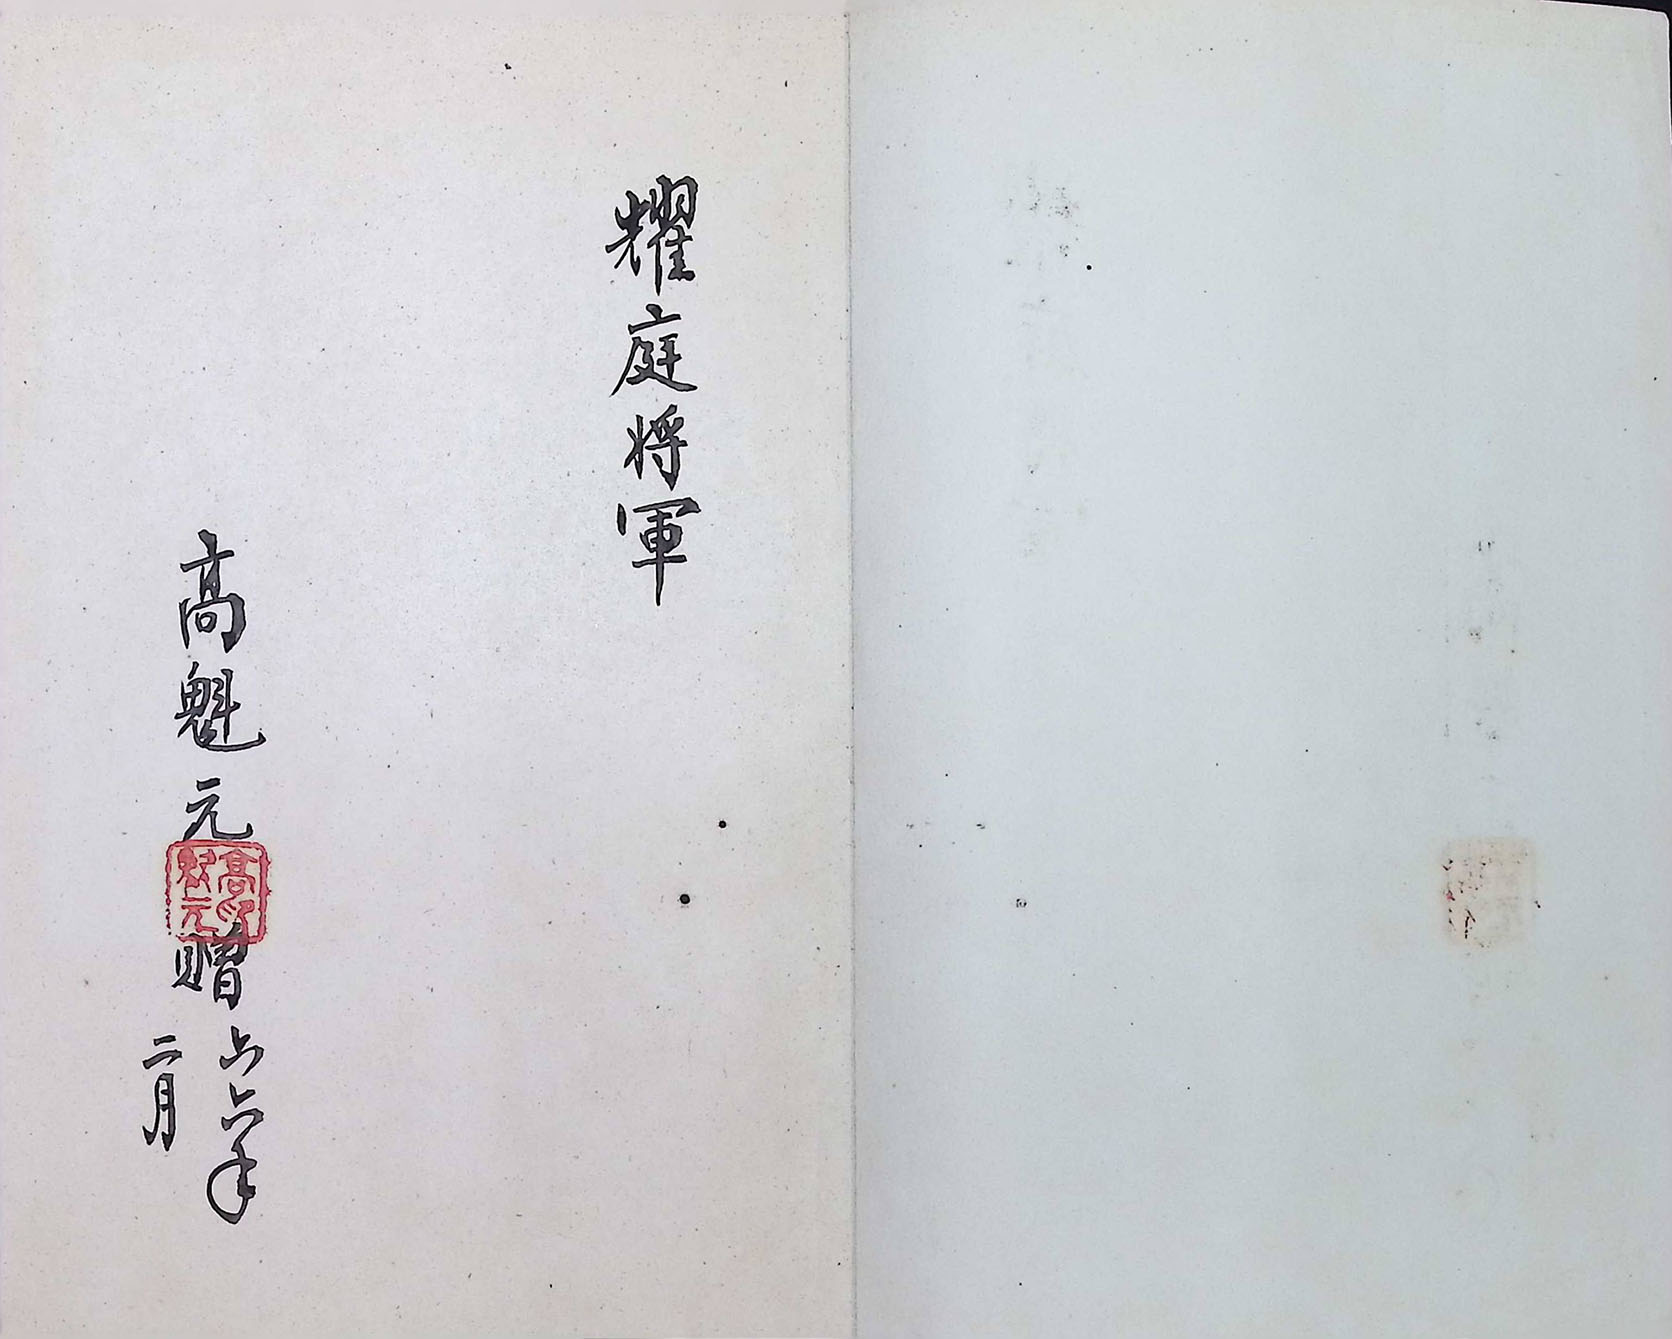 耀庭将軍
高魁元贈
六六年
二月
高印
魁元